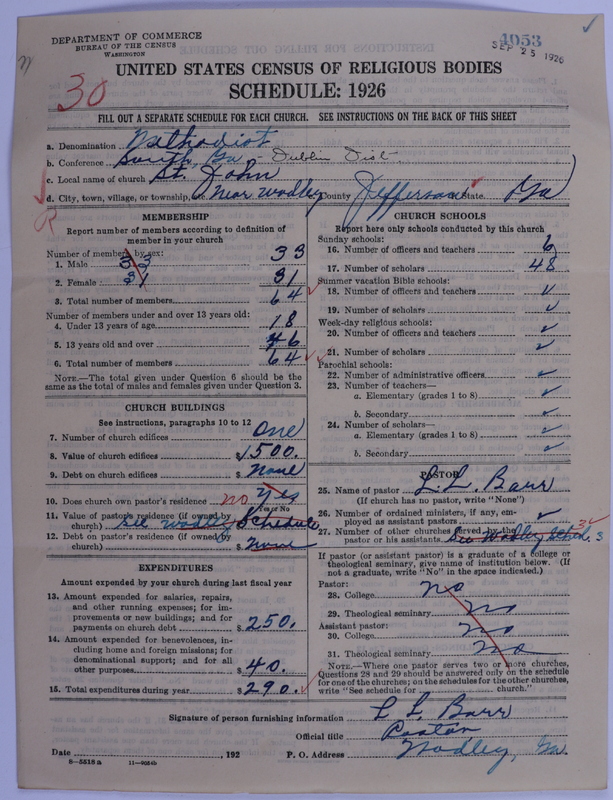 DEPARTMENT OF COMMERCE
BUREAU OF THE CENSUS
WASHINGTON
4053
SEP 23 1926
UNITED STATES CENSUS OF RELIGIOUS BODIES
SCHEDULE: 1926
30
FILL OUT A SEPARATE SCHEDULE FOR EACH CHURCH. SEE INSTRUCTIONS ON THE BACK OF THIS SHEET
a. Denomination Methodist
b. Conference South, Ga - Dublin Dist.
c. Local name of church St. John
d. City, town, village, or township, etc. Near Wadley County Jefferson State Ga
MEMBERSHIP
Report number of members according to definition of
member in your church
Number of members by sex:
1. Male 33 33
2. Female 31 31
3. Total number of members 64
Number of members under and over 13 years old:
4. Under 13 years of age 18
5. 13 years old and over 46
6. Total number of members 64
NOTE.—The total given under Question 6 should be
same as the total of males and females given under Question 3.
CHURCH BUILDINGS
See instructions, paragraphs 10 to 12
7. Number of church edifices One
8. Value of church edifices $1500.
9. Debt on church edifices $ None
10. Does church own pastor's residence no Yes
Yes or No
11. Value of pastor's residence (if owned by
church) See Wadley Schedule
12. Debt on pastor's residence (if owned by
church) $ None
EXPENDITURES
Amount expended by your church during last fiscal year
13. Amount expended for salaries, repairs,
and other running expenses; for im-
provements or new buildings; and for
payments on church debt $ 250.
14. Amount expended for benevolences, in-
cluding home and foreign missions; for
denominational support; and for all
other purposes $ 40.
15. Total expenditures during year $ 290.
CHURCH SCHOOLS
Report here only schools conducted by this church
Sunday schools:
16. Number of officers and teachers 6
17. Number of scholars 48
Summer vacation Bible schools:
18. Number of officers and teachers ✓
19. Number of scholars ✓
Week-day religious schools:
20. Number of officers and teachers ✓
21. Number of scholars ✓
Parochial schools:
22. Number of administrative officers ✓
23. Number of teachers—
a. Elementary (grades 1 to 8) ✓
b. Secondary ✓
24. Number of scholars—
a. Elementary (grades 1 to 8) ✓
b. Secondary ✓
PASTOR
25. Name of pastor L. L. Barr
(If church has no pastor, write "None")
26. Number of ordained ministers, if any, em-
ployed as assistant pastors ✓
27. Number of other churches served by the
pastor or his assistants See Wadley Sched. 3
If pastor (or assistant pastor) is a graduate of a college or
theological seminary, give name of institution below. (If
not a graduate, write "No" in the space indicated.)
Pastor:
28. College No
29. Theological seminary No
Assistant pastor:
30. College No
31. Theological seminary No
NOTE.—Where one pastor serves two or more churches,
Questions 28 and 29 should be answered only on the schedule
for one of the churches; on the schedules for the other churches,
write "See schedule for church."
Signature of person furnishing information L L Barr
Official title Pastor
Date , 192 P. O. Address Wadley, Ga.
8—5518a 11—9024b